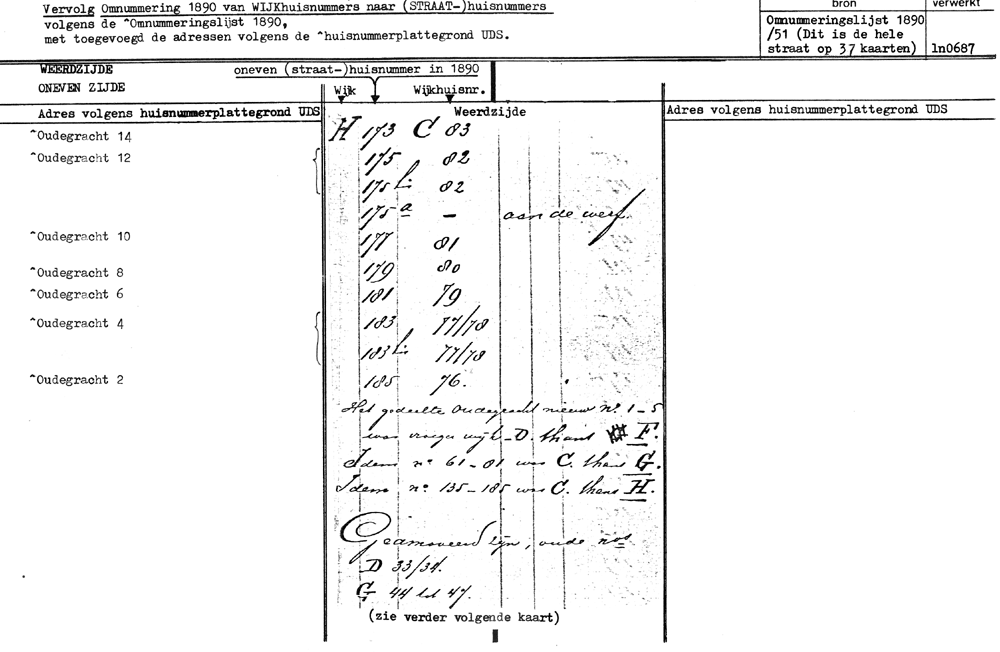 Vervolg Omnummering 1890 van WIJKhuisnummers naar (STRAAT-)huisnummers
volgens de ^Omnummeringslijst 1890,
met toegevoegd de adressen volgens de ^huisnummerplattegrond UDS.
bron
verwerkt
Omnummeringslijst 1890
/51 (Dit is de hele
straat op 37 kaarten)
ln0687
WEERDZIJDE
oneven (straat-)huisnummer in 1890
ONEVEN ZIJDE
Wijk
Wijkhuisnr.
Adres volgens huisnummerplattegrond UDS
Weerdzijde
Adres volgens huisnummerplattegrond UDS
^Oudegracht 14 H 173 C 83
^Oudegracht 12 175 82
175 bis 82
175 a — aan de werf.
^Oudegracht 10 177 81
^Oudegracht 8 179 80
^Oudegracht 6 181 79
^Oudegracht 4 183 77/78
183 bis 77/78
^Oudegracht 2 185 76.
Het gedeelte Oudegracht nieuw no. 1-5
was vroeger wijk D. thans F.
Idem no 61-81 was C. thans G.
Idem no. 135-185 was C. thans H.
Geamoveerd zijn, oude nos
D 33/34.
G 44 tot 47.
(zie verder volgende kaart)